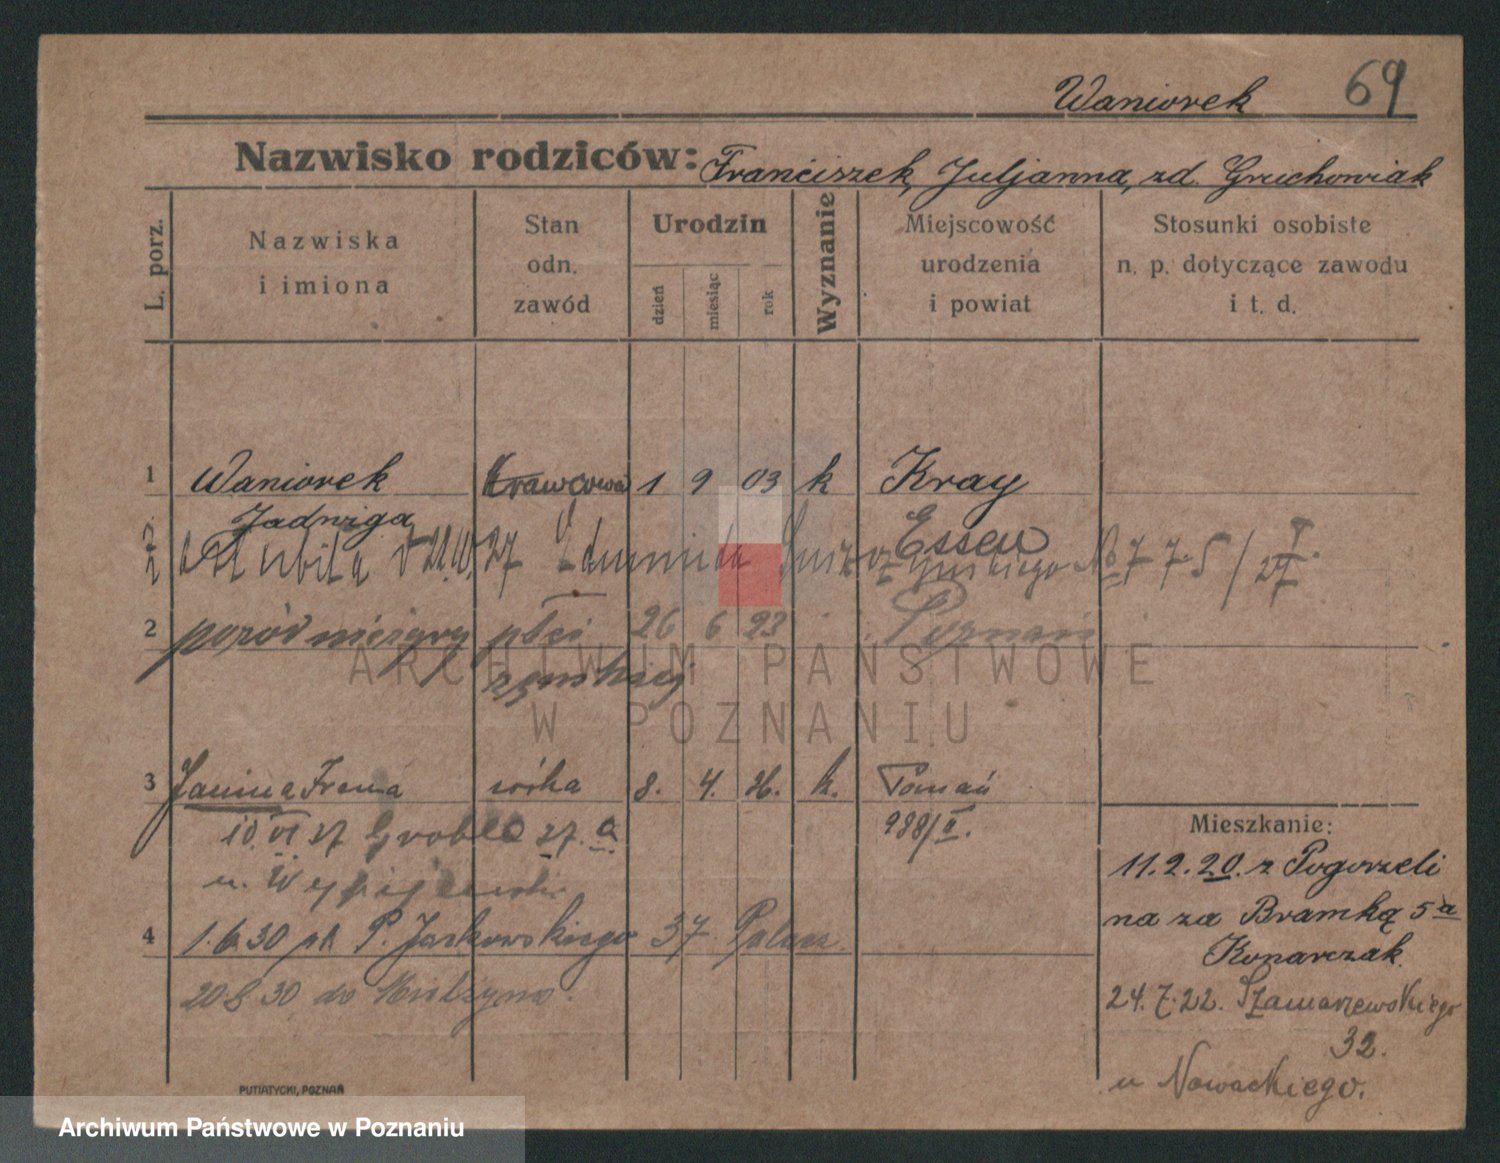 Waniorek 69
Nazwisko rodziców: Franciszek, Juljanna, zd. Gruchowiak
L. porz.
Nazwiska
i imiona
Stan
odn.
zawód
Urodzin
dzień
miesiąc
rok
Wyznanie
Miejscowość
urodzenia
i powiat
Stosunki osobiste
n. p. dotyczące zawodu
i t. d.
1 Waniorek Krawcowa 1 9 03 k Kray
Jadwiga Essen
27 No 775/27
2 poród nieżywy płci 26 6 23 Poznań
żeńskiej
ARCHIWUM PAŃSTWOWE
W POZNANIU
3 Janina Irena córka 8. 4. 26. k. Poznań
10 VI 27 Grobla 27. a 988/II.
u.
4 1. 6. 30 P. Jackowskiego 37
20 8 30 do
Mieszkanie:
11.2.20. z Pogorzeli
na za Bramką 5a
Konarczak.
24. 7. 22. Szamarzewskiego
32.
u Nowackiego.
PUTIATYCKI, POZNAŃ
Archiwum Państwowe w Poznaniu